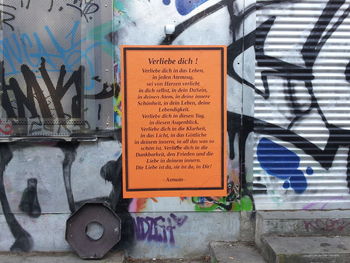 Verliebe dich !
Verliebe dich in das Leben,
in jeden Atemzug,
sei von Herzen verliebt
in dich selbst, in dein Dasein,
in deinen Atem, in deine innere
Schönheit, in dein Leben, deine
Lebendigkeit.
Verliebe dich in diesen Tag,
in diesen Augenblick.
Verliebe dich in die Klarheit,
in das Licht, in das Göttliche
in deinem innern, in all das was so
schön ist. Verliebe dich in die
Dankbarkeit, den Frieden und die
Liebe in deinem innern.
Die Liebe ist da, sie ist da, in Dir!